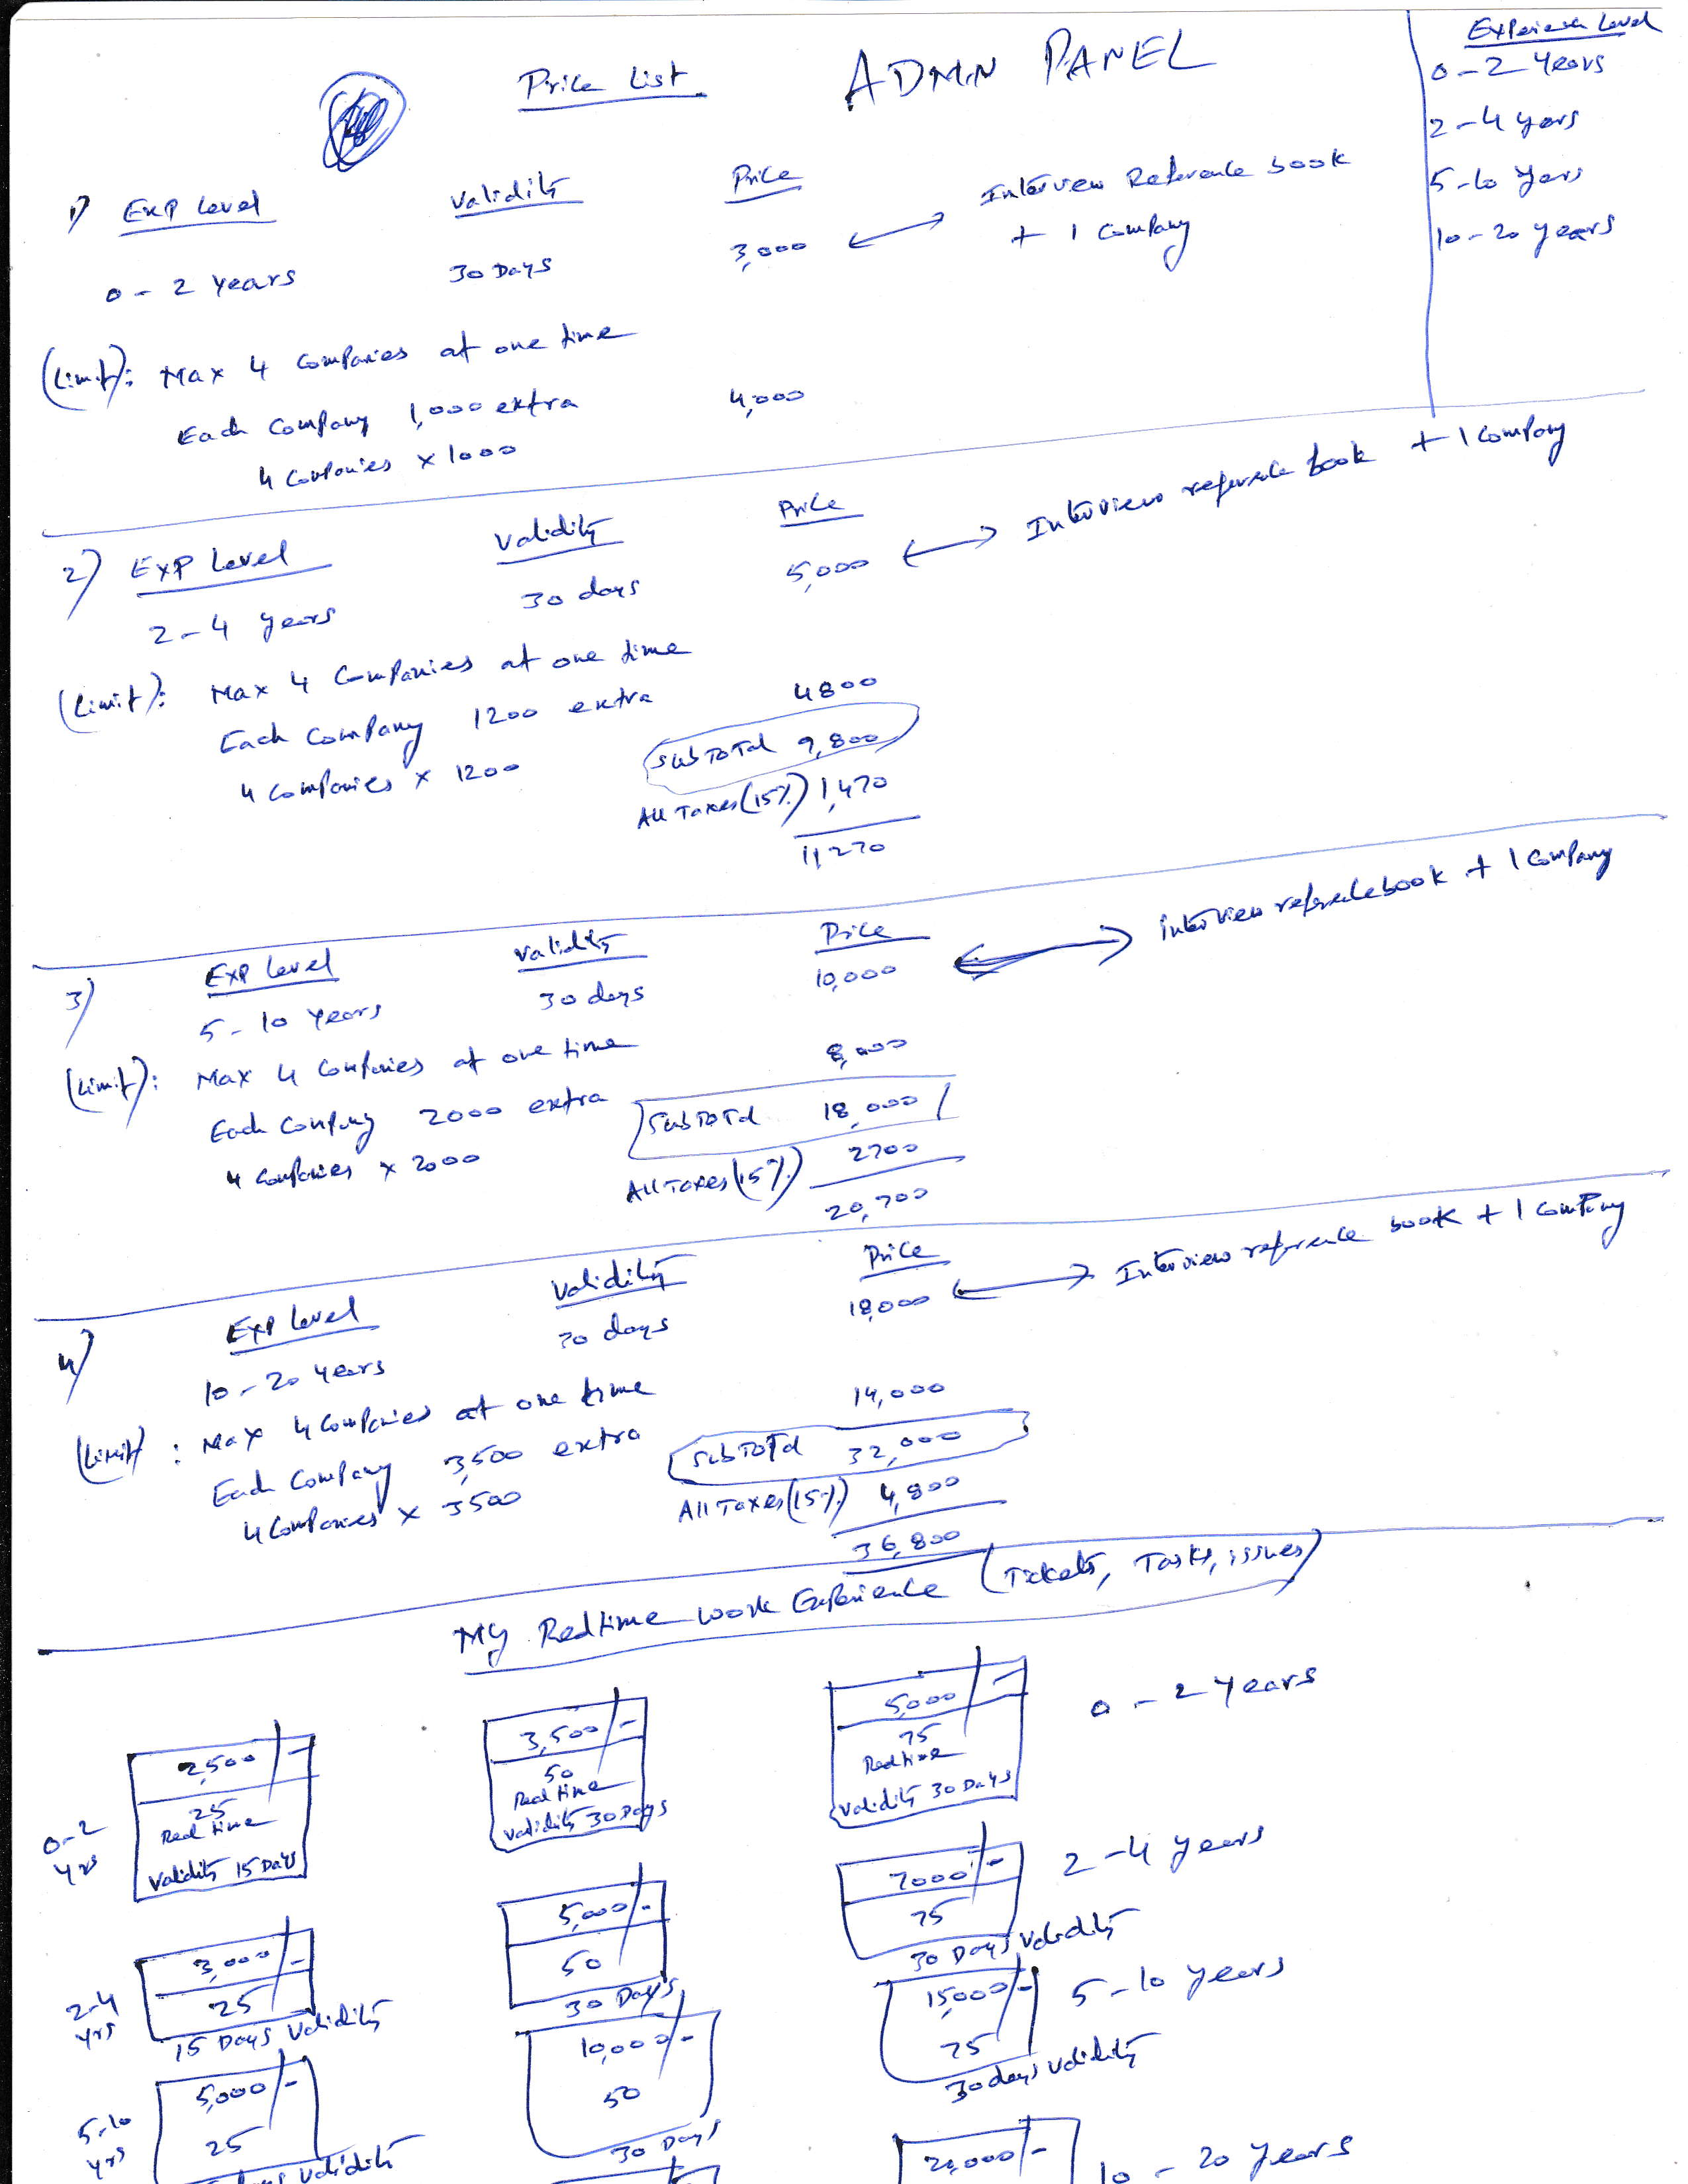 Price List ADMIN PANEL
Experience Level
0 - 2 Years
2 - 4 years
5 - 10 years
10 - 20 years
1) Exp Level Validity Price Interview Reference book
+ 1 Company
0 - 2 Years 30 Days 3,000
(Limit): Max 4 Companies at one time
Each Company 1,000 extra 4,000
4 Companies x 1000
2) Exp Level Validity Price
2 - 4 years 30 days 5,000 Interview reference book + 1 Company
(Limit): Max 4 Companies at one time
Each Company 1200 extra 4800
4 Companies x 1200 Sub Total 9,800
All Taxes (15%) 1,470
11,270
3) Exp Level Validity Price
5 - 10 Years 30 days 10,000 interview reference book + 1 Company
(Limit): Max 4 Companies at one time 8,000
Each Company 2000 extra Sub Total 18,000
4 Companies x 2000 All Taxes (15%) 2700
20,700
4) Exp Level Validity Price
10 - 20 Years 30 days 18,000 Interview reference book + 1 Company
(Limit): Max 4 Companies at one time 14,000
Each Company 3,500 extra Sub Total 32,000
4 Companies x 3500 All Taxes (15%) 4,800
36,800
My Realtime work Experience (Tickets, Tasks, issues)
0-2 yrs
2,500/-
25
Real time
Validity 15 Days
3,500/-
50
Real time
Validity 30 Days
5,000/-
75
Real time
Validity 30 Days
0 - 2 Years
2-4 yrs
3,000/-
25
15 Days Validity
5,000/-
50
30 Days
7000/-
75
30 Days Validity
2 - 4 years
5-10 yrs
5,000/-
25
Validity
10,000/-
50
30 Days
15,000/-
75
30 days validity
5 - 10 years
20,000/-
10 - 20 years